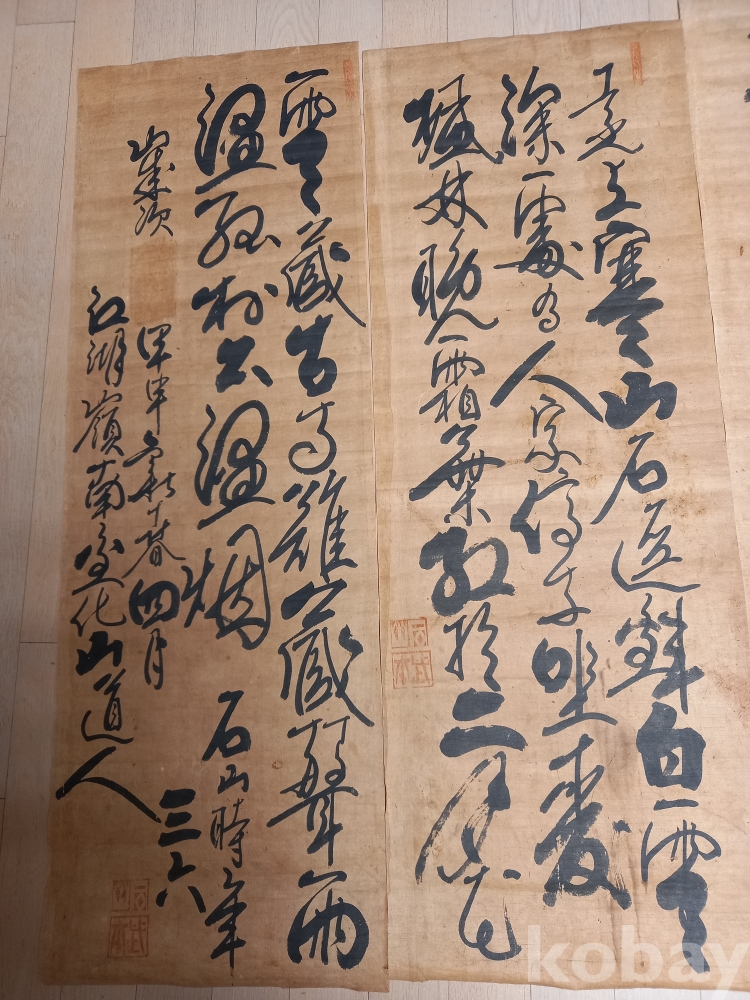 遠上寒山石逕斜白雲
深處有人家停車坐愛
楓林晚霜葉紅於二月花
雲藏古寺難藏聲雨
濕孤村不濕烟
石山時年
三六
甲申暮四月
江湖嶺南化山道人
kobay